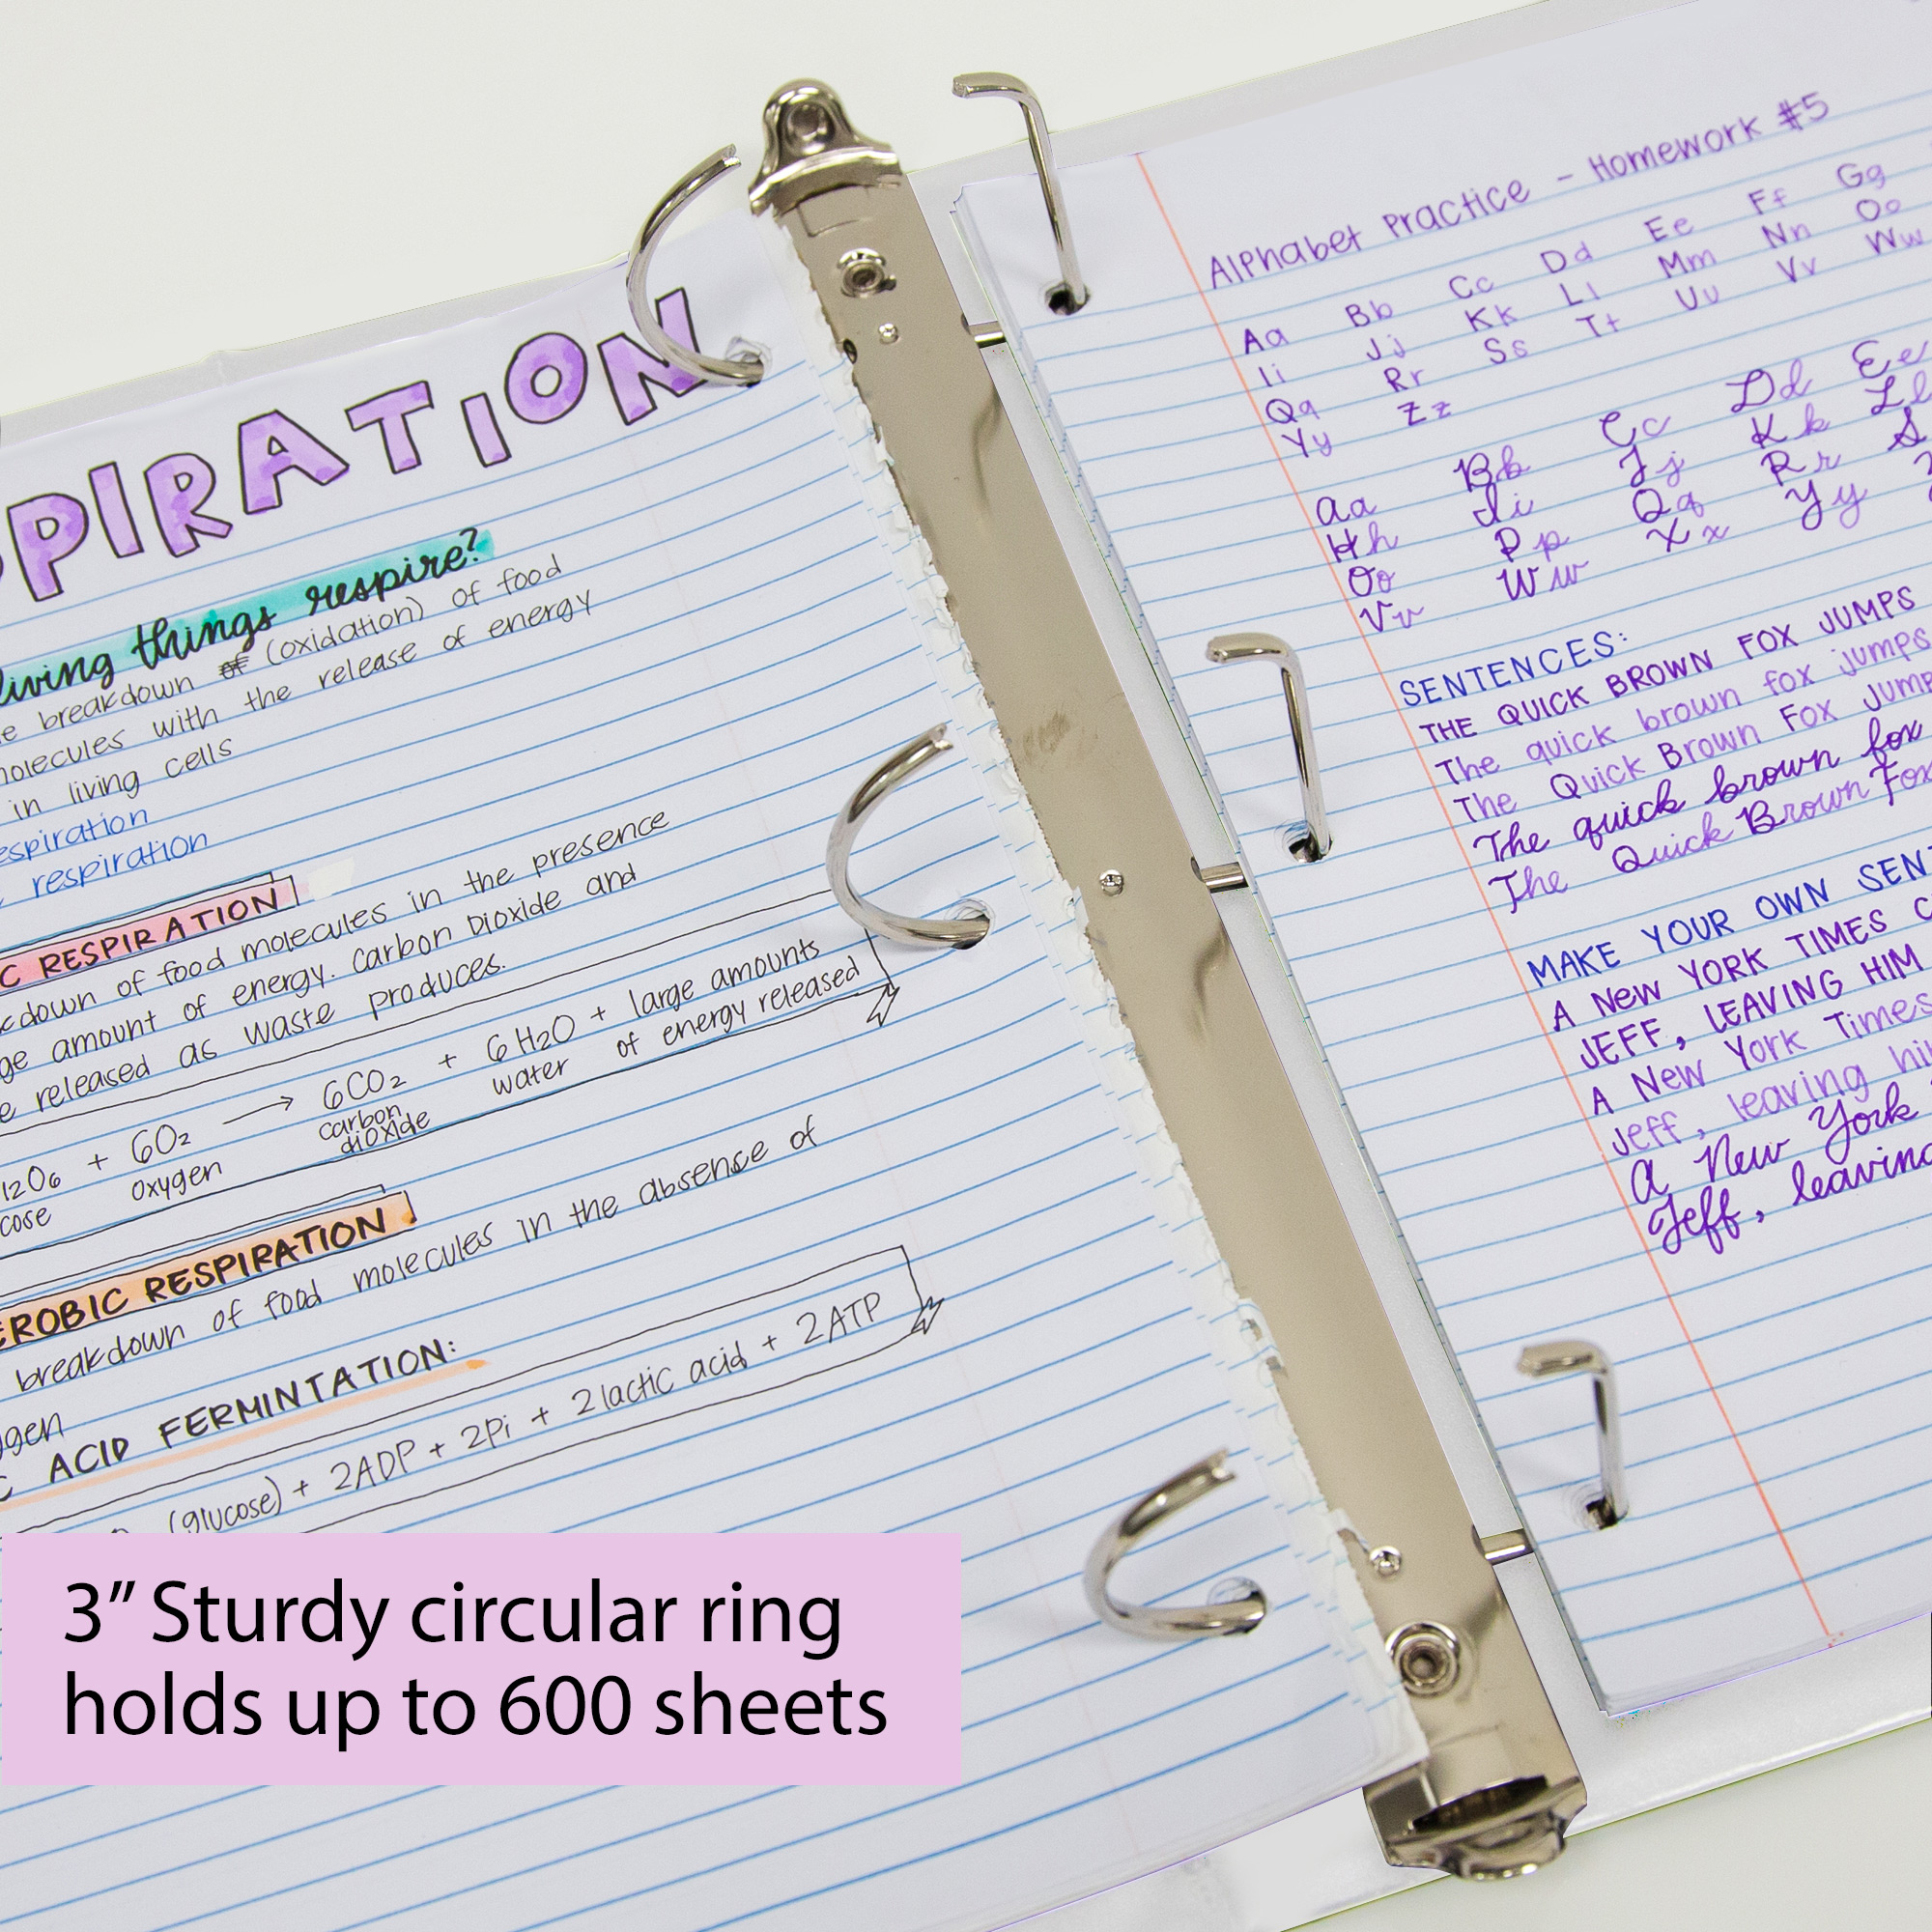 PIRATION
living things respire?
breakdown of (oxidation) of food
molecules with the release of energy
in living cells
respiration
respiration
C RESPIRATION
down of food molecules in the presence
amount of energy. Carbon Dioxide and
released as waste produces.
12O6 + 6O2 → 6CO2 + 6H2O + large amounts
cose oxygen carbon dioxide water of energy released
EROBIC RESPIRATION
breakdown of food molecules in the absence of
gen
C ACID FERMINTATION:
(glucose) + 2ADP + 2Pi + 2 lactic acid + 2ATP
3” Sturdy circular ring
holds up to 600 sheets
Alphabet Practice - Homework #5
Aa Bb Cc Dd Ee Ff Gg
Ii Jj Kk Ll Mm Nn Oo
Qq Rr Ss Tt Uu Vv Ww
Yy Zz
Aa Bb Cc Dd Ee
Hh Ii Jj Kk Ll
Oo Pp Qq Rr S
Vv Ww Xx Yy
SENTENCES:
THE QUICK BROWN FOX JUMPS
The quick brown fox jumps
The Quick Brown Fox Jump
The quick brown fox
The Quick Brown Fox
MAKE YOUR OWN SENT
A NEW YORK TIMES C
JEFF, LEAVING HIM
A New York Times
Jeff, leaving hi
A New York
Jeff, leaving